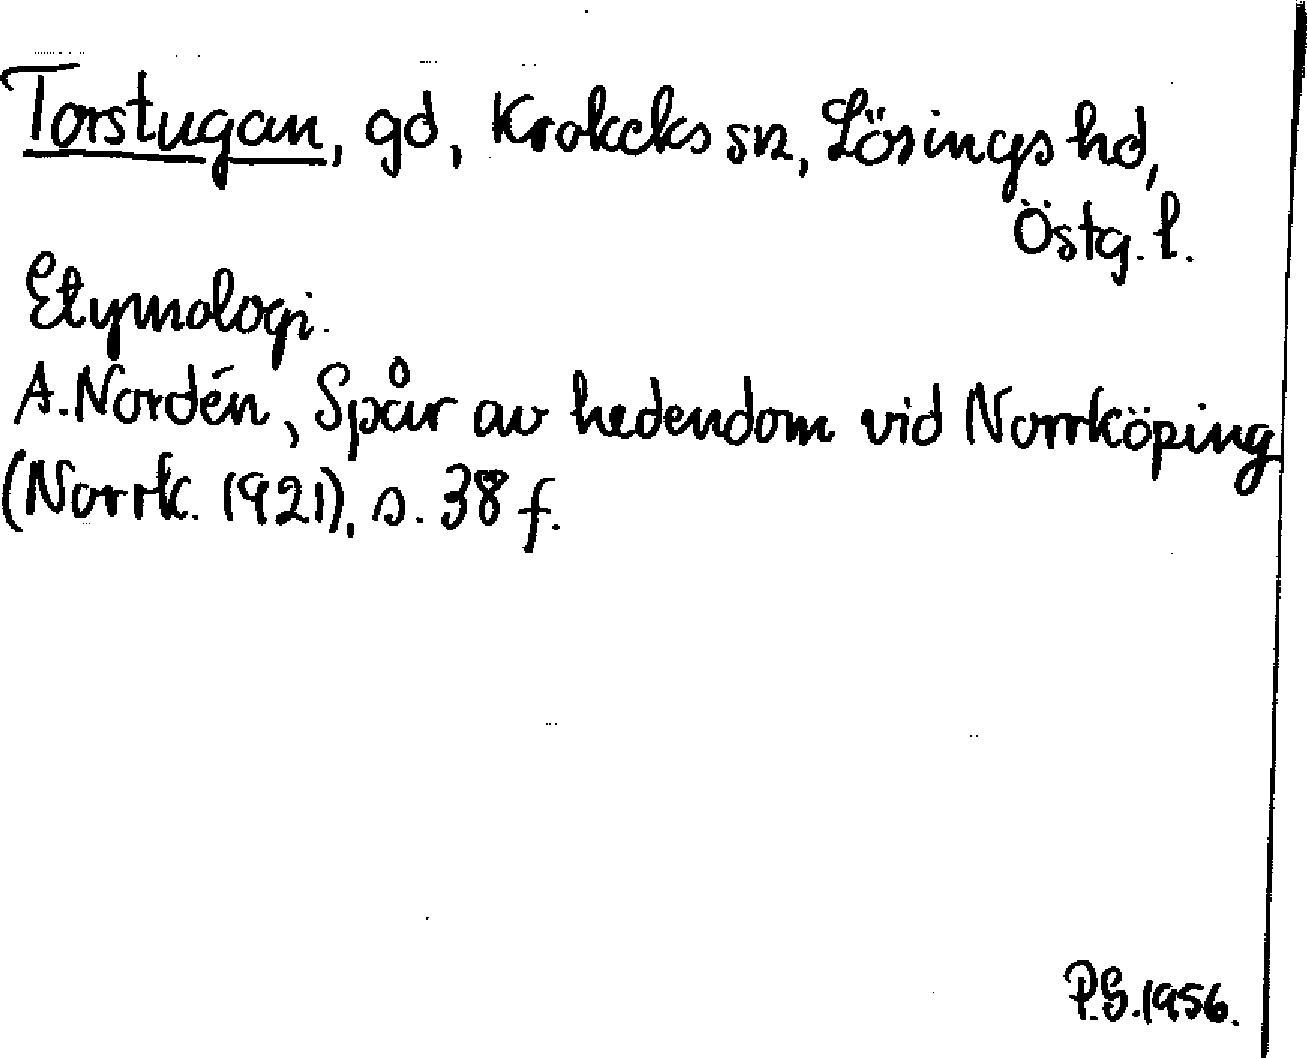 Torstugan, gd, Krokeks sn, Lösings hd,
Östg. l.
Etymologi.
A. Nordén, Spår av hedendom vid Norrköping
(Norrk. 1921), s. 38 f.
P.S. 1956.